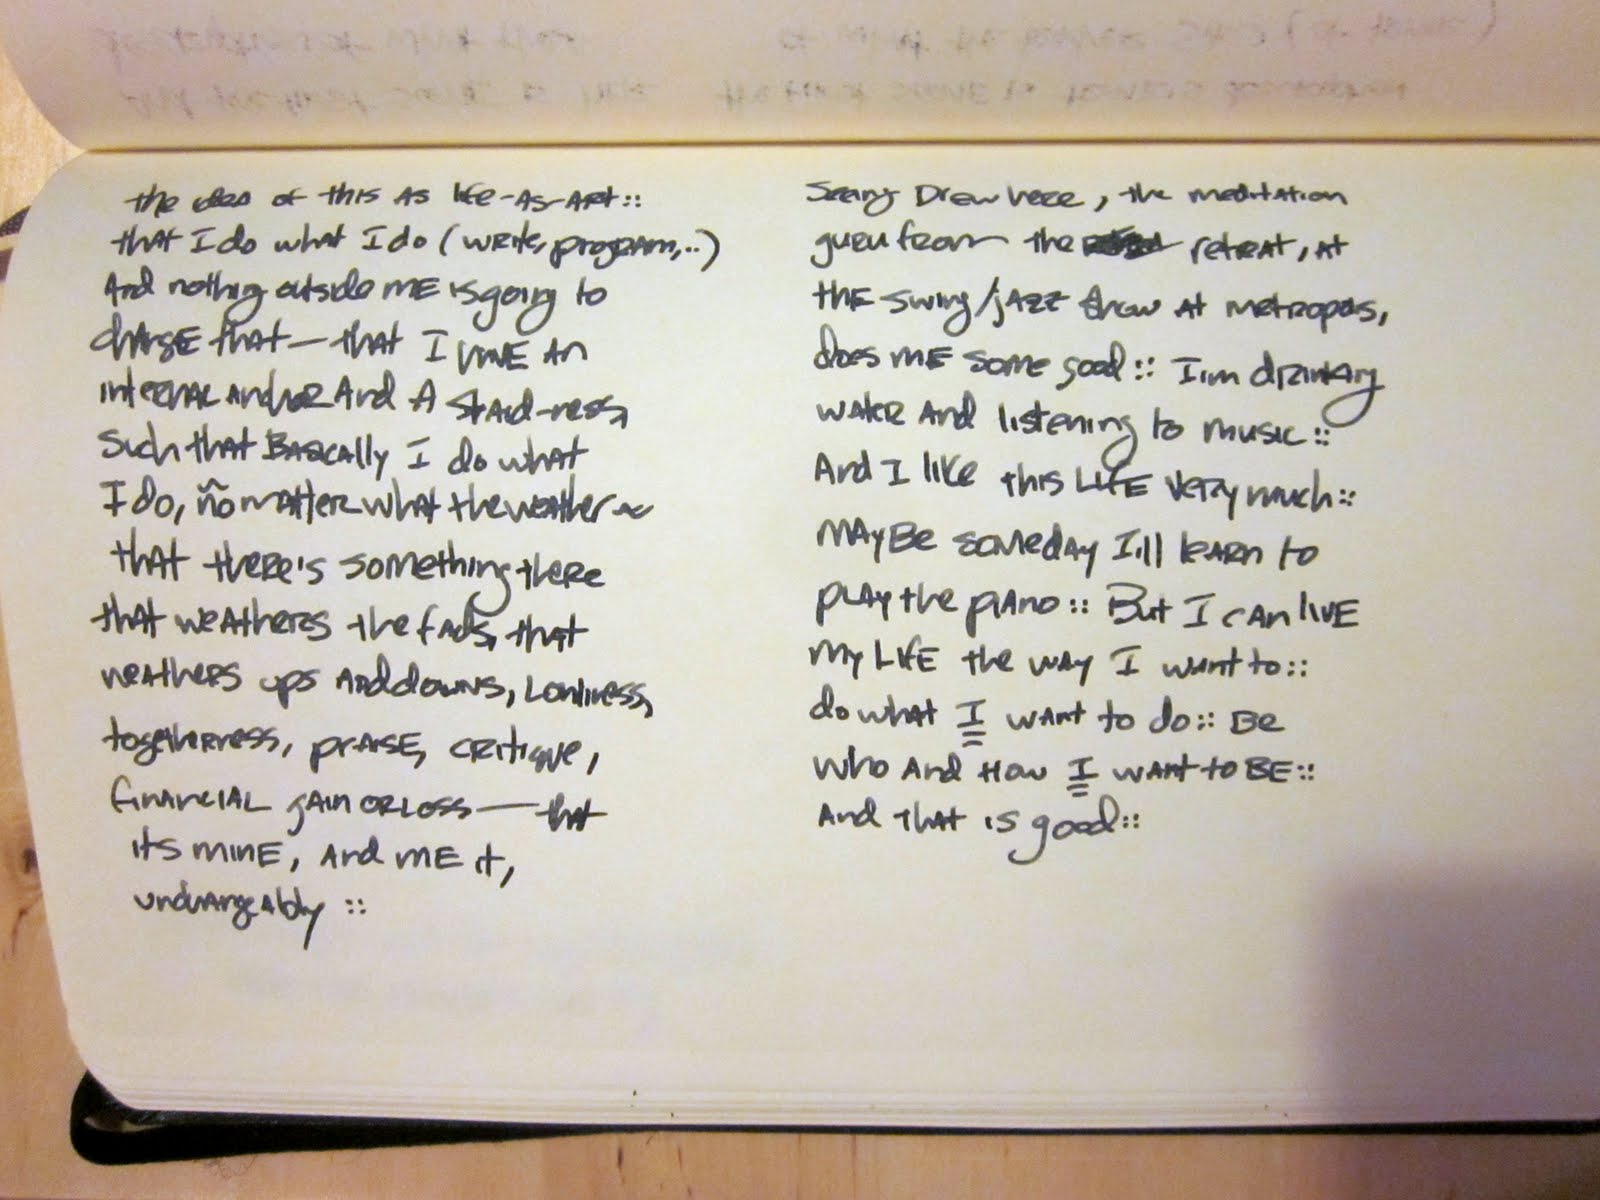 the idea of this as life-as-art::
that I do what I do (write, program,..)
And nothing outside me is going to
change that — that I have an
internal anchor And A staid-ness,
such that Basically I do what
I do, no matter what the weather ~
that there's something there
that weathers the fads, that
weathers ups and downs, Lonliness,
togetherness, praise, critique,
financial gain or loss — that
its mine, and me it,
unchangeably ::
Seeing Drew here, the meditation
guru from the retreat, at
the swing/jazz show at metropolis,
does me some good :: I'm drinking
water and listening to music ::
And I like this LIFE very much ::
Maybe someday I'll learn to
play the piano :: But I can live
my life the way I want to ::
do what I want to do :: Be
who and how I want to BE ::
And that is good ::